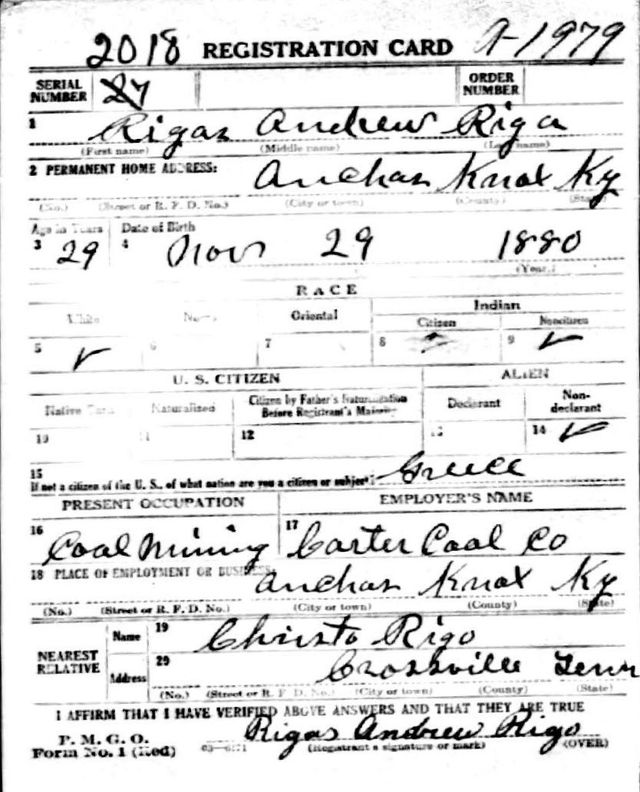 2018 REGISTRATION CARD A-1979
SERIAL NUMBER 27 ORDER NUMBER
1 Rigas Andrew Riga
(First name) (Middle name) (Last name)
2 PERMANENT HOME ADDRESS: Anchas Knox Ky
(No.) (Street or R. F. D. No.) (City or town) (County) (State)
Age in Years Date of Birth
3 29 4 Nov 29 1880
(Year.)
RACE
White Oriental Indian
Citizen Noncitizen
5 ✓ 6 7 8 9 ✓
U. S. CITIZEN ALIEN
Native Born Naturalized Citizen by Father's Naturalization Before Registrant's Majority Declarant Non-declarant
10 11 12 13 14 ✓
15
If not a citizen of the U. S., of what nation are you a citizen or subject? Greece
PRESENT OCCUPATION EMPLOYER'S NAME
16 Coal Mining 17 Carter Coal Co
18 PLACE OF EMPLOYMENT OR BUSINESS: Anchas Knox Ky
(No.) (Street or R. F. D. No.) (City or town) (County) (State)
NEAREST RELATIVE Name 19 Christo Rigo
Address 20 Crossville Tenn
(No.) (Street or R. F. D. No.) (City or town) (County) (State)
I AFFIRM THAT I HAVE VERIFIED ABOVE ANSWERS AND THAT THEY ARE TRUE
P. M. G. O.
Form No. 1 (Red) Rigas Andrew Rigo
(Registrant's signature or mark) (OVER)